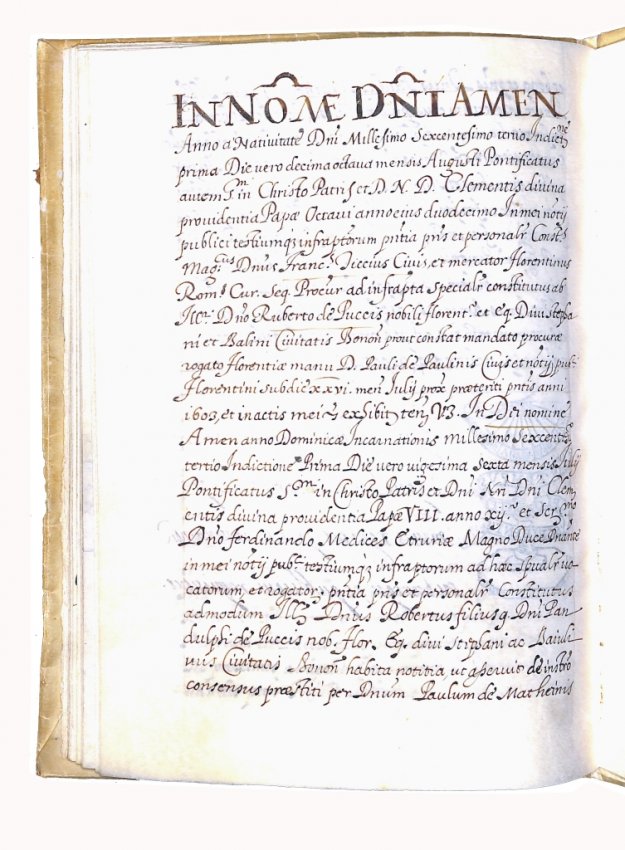 IN NOĪE DN̄I AMEN
Anno a Nativitate Dnī Millesimo Sexcentesimo tertio Indictne
prima Die vero decima octava mensis Augusti Pontificatus
autem S.mi in Christo Patris et D. N. D. Clementis divina
providentia Papæ Octavi anno eius duodecimo In mei notij
publici testiumqz infraptorum pntia pns et personalr Const.s
Mag.cus Dnus Franc.s Ticcius Civis, et mercator florentinus
Rom.s Cur. Seq. Procur ad infrapta specialr constitutus ab
Ill.ri Dno Ruberto de Puccis nobili florent.s et Eq. Divi Stepha
ni et Balini Civitatis Bonon prout constat mandato procuræ
rogato florentiæ manu D. Pauli de Paulinis Civis et notij pub.
florentini sub die xxvi. men Julij prox præteriti pntis anni
1603, et in actis mei exhibit ten V3. In Dei nomine
Amen anno Dominicæ Incarnationis millesimo Sexcente
tertio Indictione Prima Die vero vigesima Sexta mensis Julij
Pontificatus S.mi in Christo Patris et Dni Nri Dni Clem
entis divina providentia Papæ VIII. anno xij.o et Ser.mo
Dno ferdinando Medices Etruriæ Magno Duce Dnante
in mei notij pub. testiumqz infraptorum ad hæc spualr vo
catorum et rogator. pntia pns et personalr Constitutus
admodum Ill. Dnus Robertus filius q. Dni Pan
dulphi de Puccis nob. flor. Eq. divi Stephani ac Baiuli
vus Civitatis Bonon habita notitia ut asseruit de instro
consensus præstiti per Dnum Paulum de Matheinis